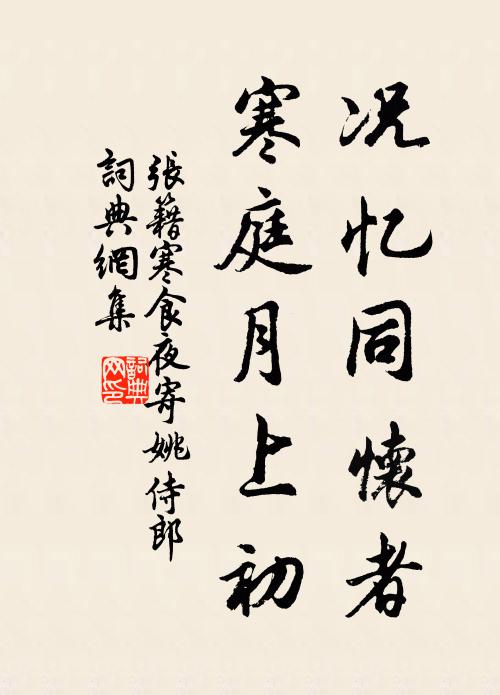 况忆同懷者
寒庭月上初
張籍寒食夜寄姚侍郎
詞典網集
詞典網印